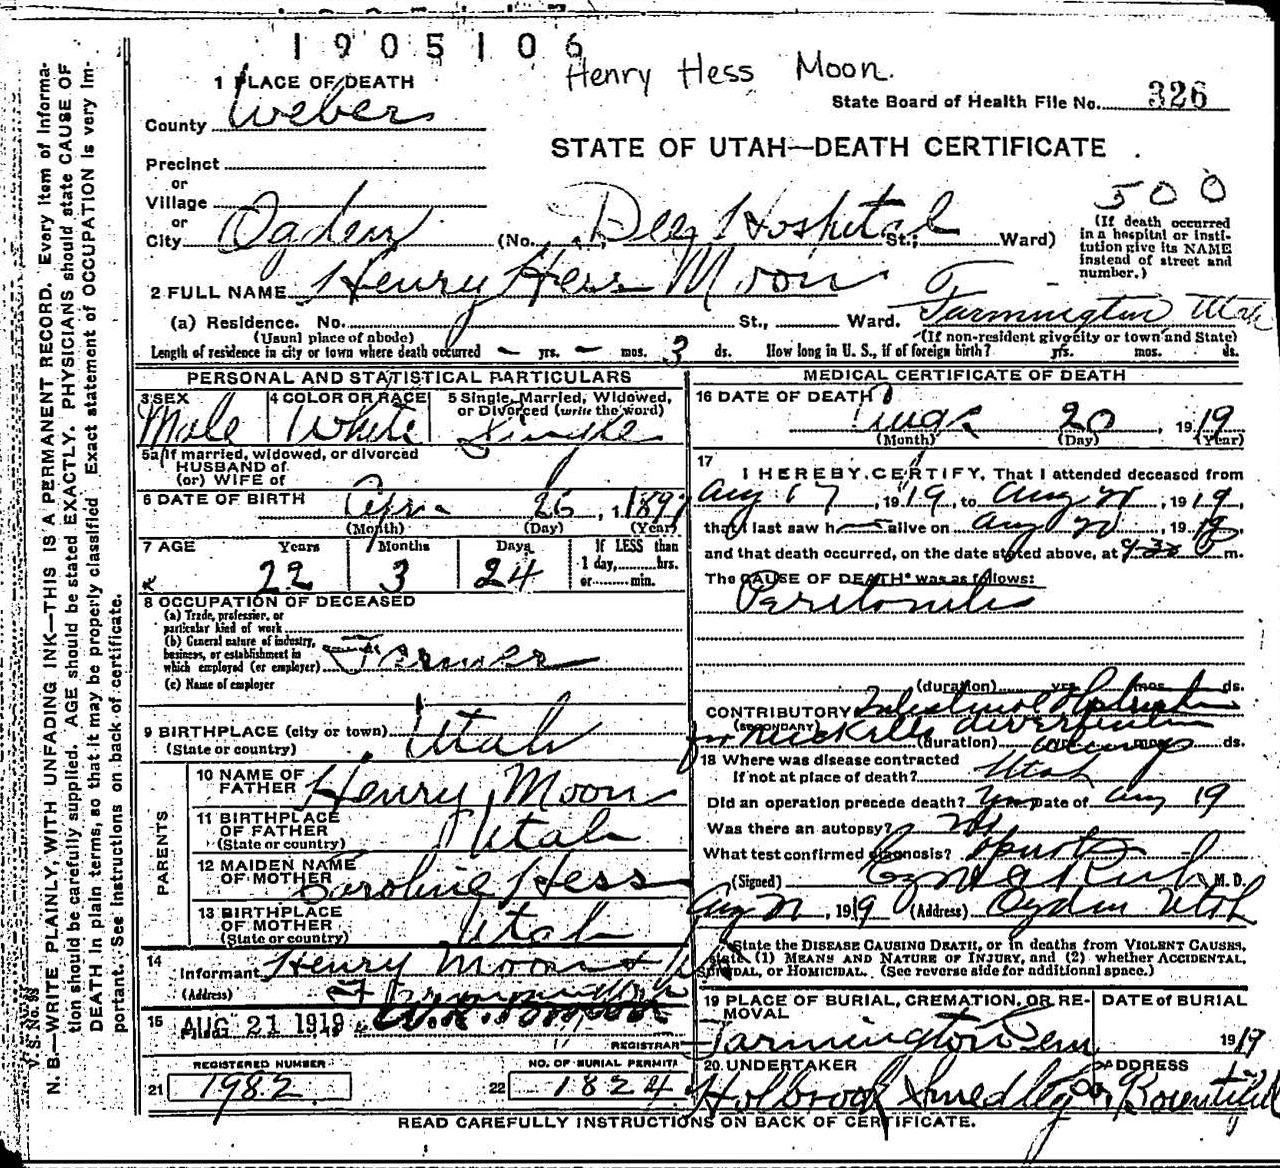 1905106
Henry Hess Moon.
1 PLACE OF DEATH
State Board of Health File No. 326
County Weber
STATE OF UTAH—DEATH CERTIFICATE
Precinct
or
Village
or
City Ogden (No. Dee Hospital St.; Ward)
500
(If death occurred
in a hospital or insti-
tution give its NAME
instead of street and
number.)
2 FULL NAME Henry Hess Moon
(a) Residence. No. St., Ward. Farmington Utah
(Usual place of abode) (If non-resident give city or town and State)
Length of residence in city or town where death occurred — yrs. — mos. 3 ds. How long in U. S., if of foreign birth? yrs. mos. ds.
PERSONAL AND STATISTICAL PARTICULARS
3 SEX Male
4 COLOR OR RACE White
5 Single, Married, Widowed,
or Divorced (write the word)
Single
5a If married, widowed, or divorced
HUSBAND of
(or) WIFE of
6 DATE OF BIRTH 26, 1897
(Month) (Day) (Year)
7 AGE Years Months Days If LESS than
1 day, hrs.
or min.
22 3 24
8 OCCUPATION OF DECEASED
(a) Trade, profession, or
particular kind of work
(b) General nature of industry,
business, or establishment in
which employed (or employer) Farmer
(c) Name of employer
9 BIRTHPLACE (city or town)
(State or country) Utah
PARENTS
10 NAME OF
FATHER Henry Moon
11 BIRTHPLACE
OF FATHER
(State or country) Utah
12 MAIDEN NAME
OF MOTHER Caroline Hess
13 BIRTHPLACE
OF MOTHER
(State or country) Utah
14
Informant Henry Moon
(Address)
15 AUG 21 1919
REGISTRAR
REGISTERED NUMBER
21 1982
NO. OF BURIAL PERMIT
22 1824
MEDICAL CERTIFICATE OF DEATH
16 DATE OF DEATH
Aug 20, 1919
(Month) (Day) (Year)
17
I HEREBY CERTIFY, That I attended deceased from
Aug 17, 1919, to Aug 20, 1919,
that I last saw h alive on Aug 20, 1919
and that death occurred, on the date stated above, at 9:30 m.
The CAUSE OF DEATH* was as follows:
Peritonitis
(duration) yrs. mos. ds.
CONTRIBUTORY Intestinal Obstruction
(SECONDARY) diverticulum
(duration) ds.
18 Where was disease contracted
if not at place of death? Utah
Did an operation precede death? Yes Date of Aug 19
Was there an autopsy? No
What test confirmed diagnosis?
(Signed) M. D.
1919 (Address) Ogden Utah
*State the DISEASE CAUSING DEATH, or in deaths from VIOLENT CAUSES,
state (1) MEANS AND NATURE OF INJURY, and (2) whether ACCIDENTAL,
SUICIDAL, OR HOMICIDAL. (See reverse side for additional space.)
19 PLACE OF BURIAL, CREMATION, OR RE-
MOVAL
Farmington Cem
DATE of BURIAL
1919
20 UNDERTAKER
ADDRESS
Holbrook Smedley Bountiful
READ CAREFULLY INSTRUCTIONS ON BACK OF CERTIFICATE.
V. S. No. 98
N. B.—WRITE PLAINLY, WITH UNFADING INK—THIS IS A PERMANENT RECORD. Every item of informa-
tion should be carefully supplied. AGE should be stated EXACTLY. PHYSICIANS should state CAUSE OF
DEATH in plain terms, so that it may be properly classified. Exact statement of OCCUPATION is very im-
portant. See instructions on back of certificate.